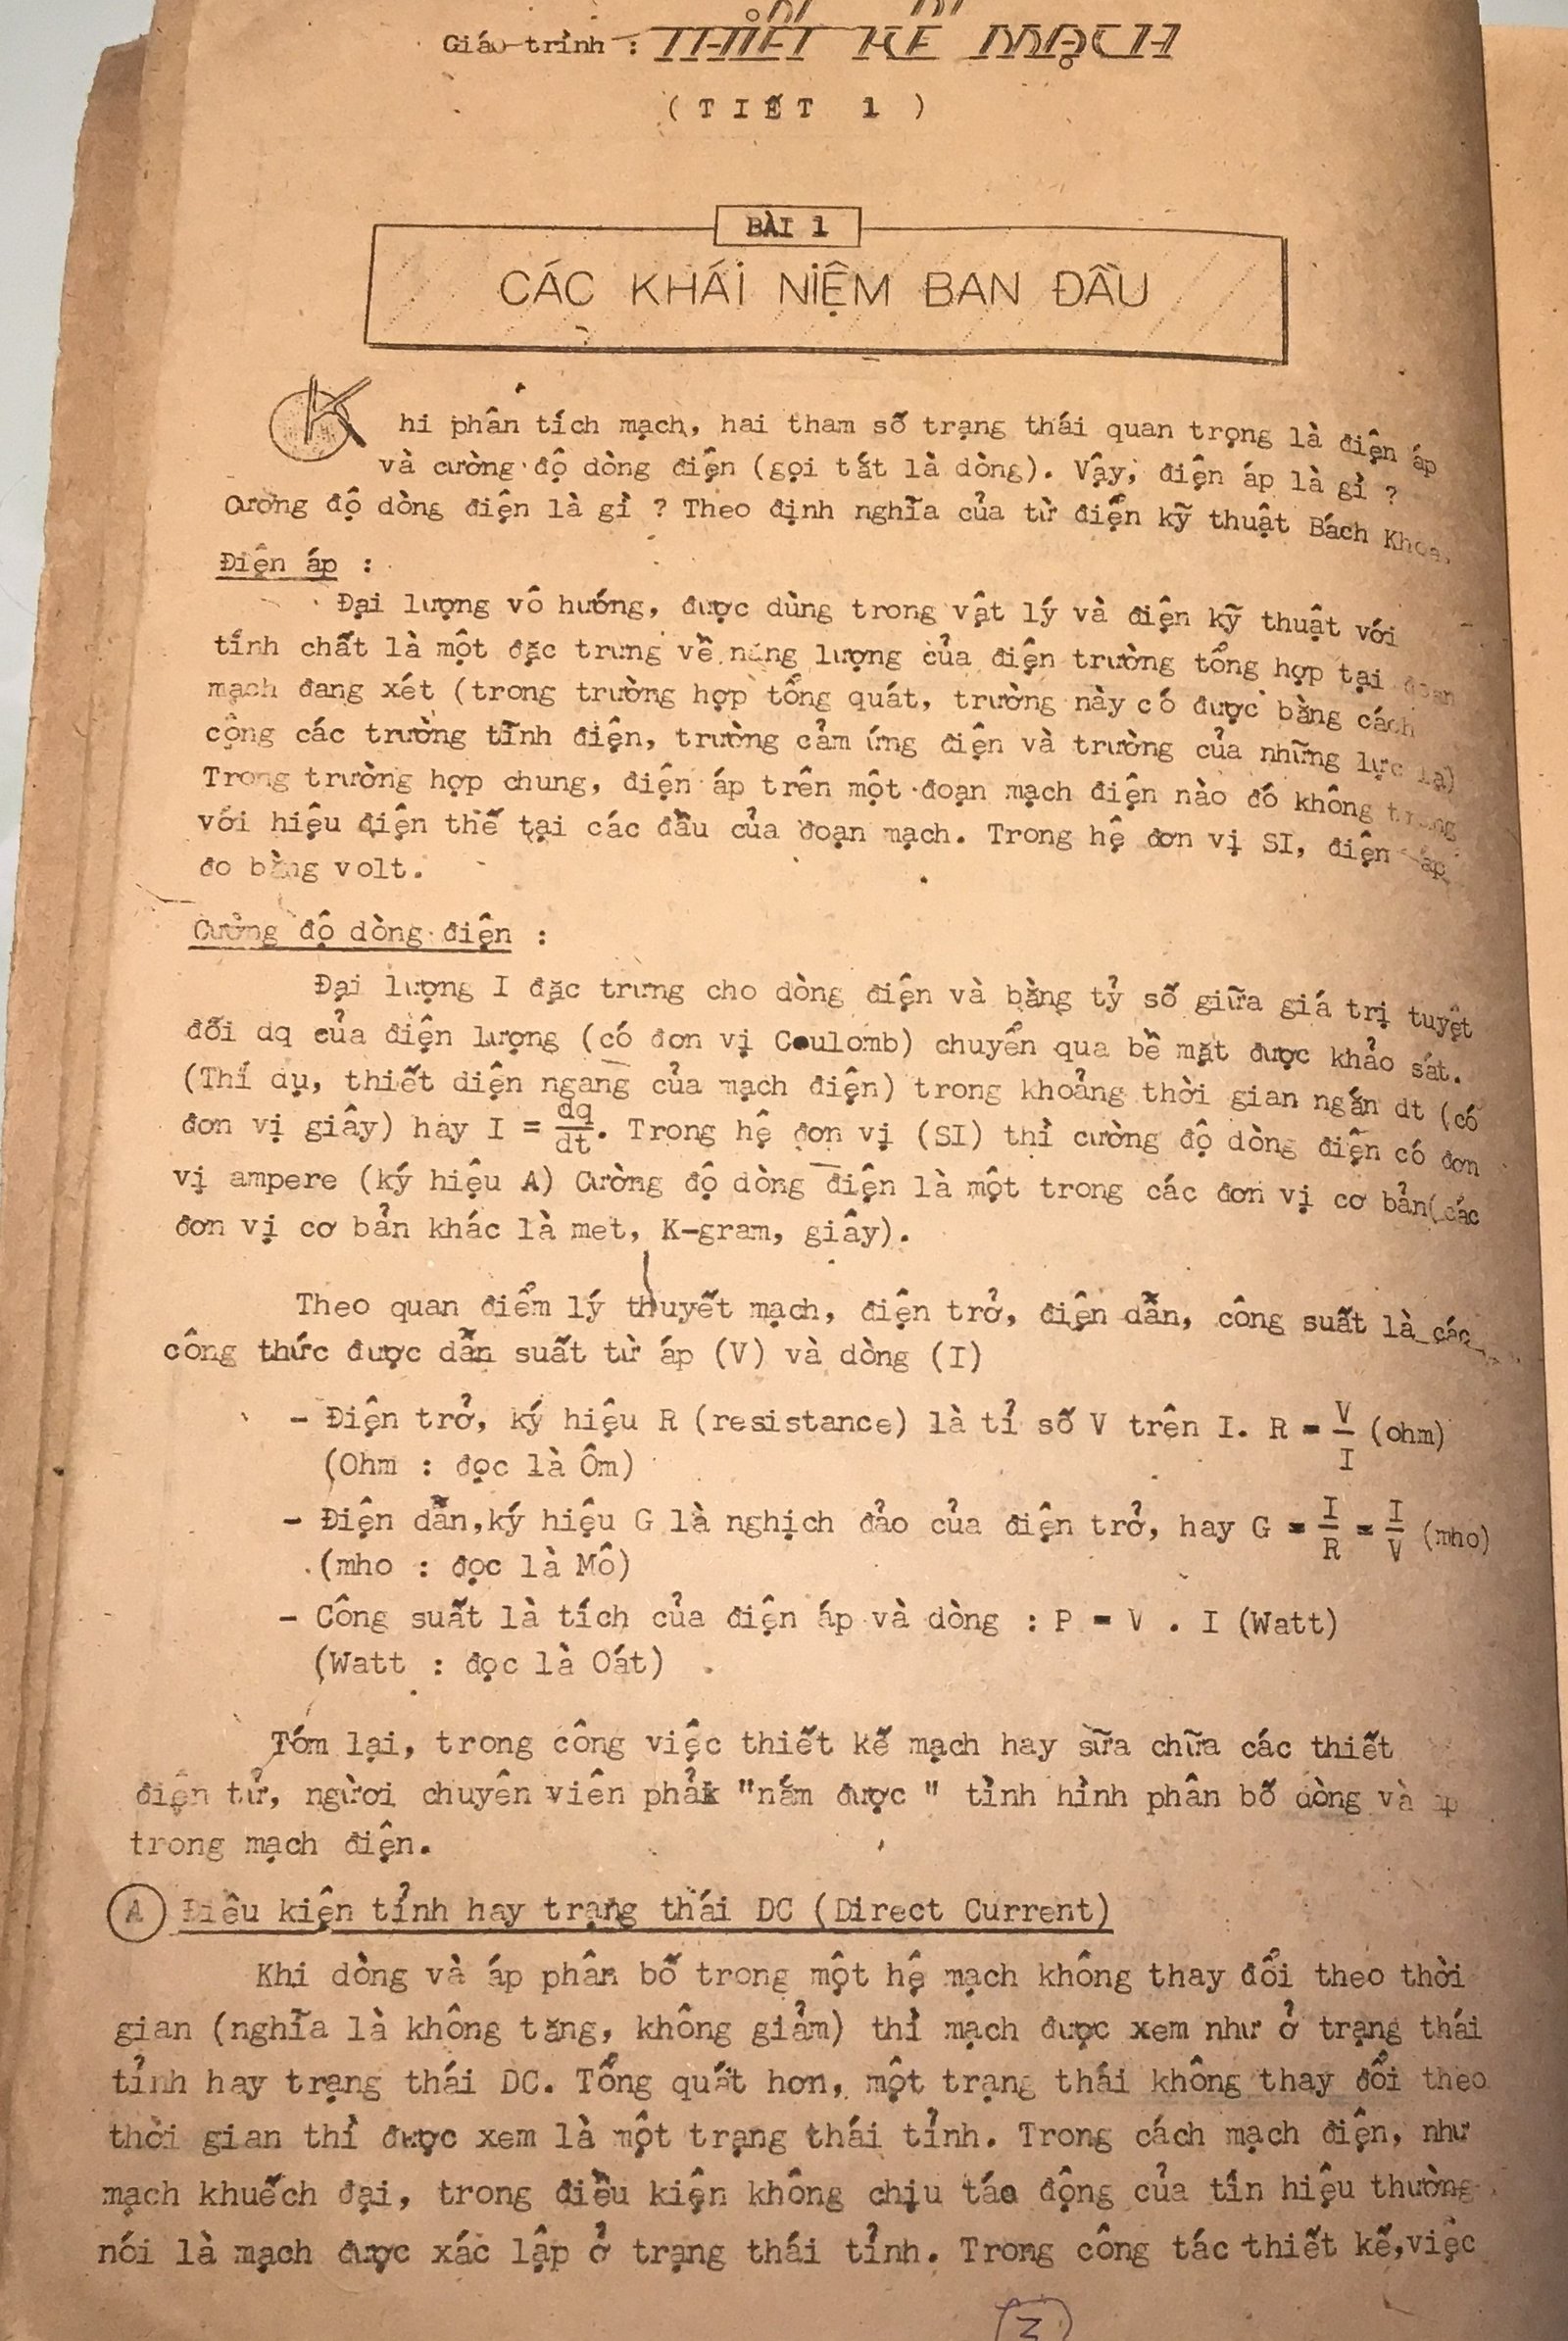 Giáo trình : THIẾT KẾ MẠCH
( TIẾT 1 )
BÀI 1
CÁC KHÁI NIỆM BAN ĐẦU
Khi phân tích mạch, hai tham số trạng thái quan trọng là điện áp
và cường độ dòng điện (gọi tắt là dòng). Vậy, điện áp là gì ?
Cường độ dòng điện là gì ? Theo định nghĩa của từ điển kỹ thuật Bách Khoa.
Điện áp :
Đại lượng vô hướng, được dùng trong vật lý và điện kỹ thuật với
tính chất là một đặc trưng về năng lượng của điện trường tổng hợp tại đoạn
mạch đang xét (trong trường hợp tổng quát, trường này có được bằng cách
cộng các trường tĩnh điện, trường cảm ứng điện và trường của những lực lạ)
Trong trường hợp chung, điện áp trên một đoạn mạch điện nào đó không trùng
với hiệu điện thế tại các đầu của đoạn mạch. Trong hệ đơn vị SI, điện áp
đo bằng volt.
Cường độ dòng điện :
Đại lượng I đặc trưng cho dòng điện và bằng tỷ số giữa giá trị tuyệt
đối dq của điện lượng (có đơn vị Coulomb) chuyển qua bề mặt được khảo sát.
(Thí dụ, thiết diện ngang của mạch điện) trong khoảng thời gian ngắn dt (có
đơn vị giây) hay I = dq/dt. Trong hệ đơn vị (SI) thì cường độ dòng điện có đơn
vị ampere (ký hiệu A) Cường độ dòng điện là một trong các đơn vị cơ bản(các
đơn vị cơ bản khác là met, K-gram, giây).
Theo quan điểm lý thuyết mạch, điện trở, điện dẫn, công suất là các
công thức được dẫn suất từ áp (V) và dòng (I)
- Điện trở, ký hiệu R (resistance) là tỉ số V trên I. R = V/I (ohm)
(Ohm : đọc là Ôm)
- Điện dẫn,ký hiệu G là nghịch đảo của điện trở, hay G = I/R = I/V (mho)
(mho : đọc là Mô)
- Công suất là tích của điện áp và dòng : P = V . I (Watt)
(Watt : đọc là Oát)
Tóm lại, trong công việc thiết kế mạch hay sữa chữa các thiết
điện tử, người chuyên viên phải "nắm được " tình hình phân bố dòng và áp
trong mạch điện.
A Điều kiện tỉnh hay trạng thái DC (Direct Current)
Khi dòng và áp phân bố trong một hệ mạch không thay đổi theo thời
gian (nghĩa là không tăng, không giảm) thì mạch được xem như ở trạng thái
tỉnh hay trạng thái DC. Tổng quát hơn, một trạng thái không thay đổi theo
thời gian thì được xem là một trạng thái tỉnh. Trong cách mạch điện, như
mạch khuếch đại, trong điều kiện không chịu tác động của tín hiệu thường
nói là mạch được xác lập ở trạng thái tỉnh. Trong công tác thiết kế,việc